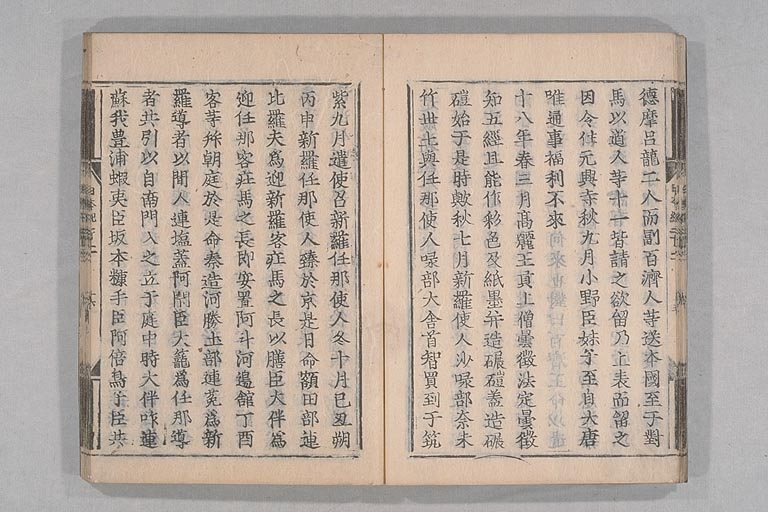 德摩呂龍二人而副百濟人䓁送本國至于對
馬以道人䓁十一皆請之欲留乃上表而留之
因令住元興寺秋九月小野臣妹子至自大唐
唯通事福利不來
十八年春三月髙麗王貢上僧曇徵法定曇徵
知五經且能作彩色及紙墨幷造碾磑盖造碾
磑始于是時歟秋七月新羅使人沙㖨部奈末
竹世士與任那使人㖨部大舎首智買到于筑
紫九月遣使召新羅任那使人冬十月己丑朔
丙申新羅任那使人臻於京是日命額田部連
比羅夫爲迎新羅客莊馬之長以膳臣大伴爲
迎任那客莊馬之長即安置阿斗河邊舘丁酉
客䓁拜朝庭於是命秦造河勝土部連莵爲新
羅導者以間人連塩盖阿閇臣大籠爲任那導
者共引以自南門入之立于庭中時大伴咋連
蘇我豊浦蝦夷臣坂本糠手臣阿倍鳥子臣共